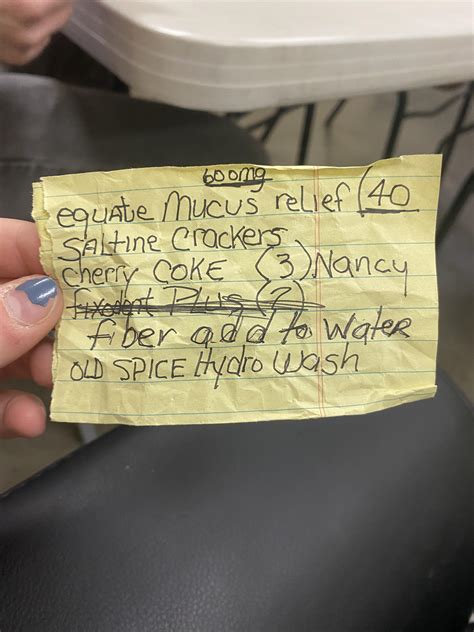 600mg
equate Mucus relief (40
SALtine Crackers
cherry COKE (3) Nancy
fixodent Plus (2)
fiber add to Water
OLD SPICE Hydro Wash